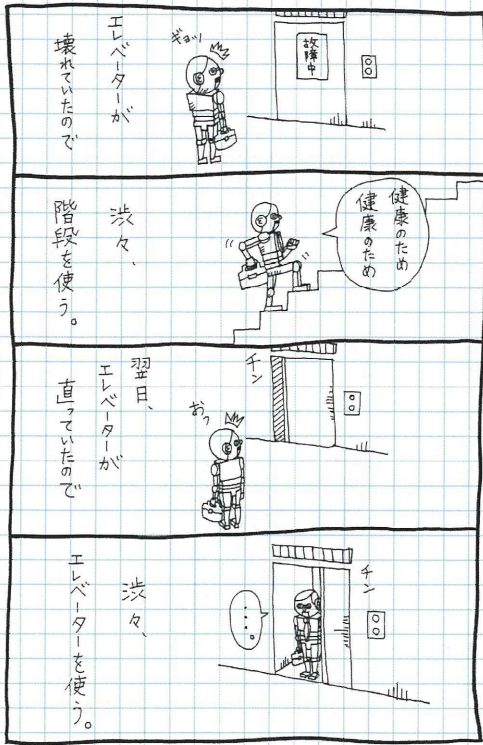 故障中
ギョッ
エレベーターが
壊れていたので
健康のため
健康のため
渋々、
階段を使う。
チン
おっ
翌日、
エレベーターが
直っていたので
チン
・・・・。
渋々、
エレベーターを使う。